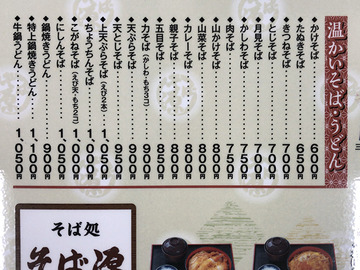 温かいそば・うどん
かけそば 650円
たぬきそば 700円
きつねそば 700円
とじそば 700円
月見そば 700円
かしわそば 750円
肉そば 750円
山かけそば 800円
山菜そば 800円
カレーそば 800円
親子そば 800円
五目そば 850円
力そば(かしわ・もち3コ) 900円
天ぷらそば 900円
天とじそば 950円
上天ぷらそば(えび2本) 1,050円
ちょうちんそば 1,000円
こがねそば(えび天・もち2コ) 1,100円
にしんそば 1,050円
鍋焼きうどん 900円
特上鍋焼きうどん 1,100円
牛鍋うどん 1,050円
そば処
そば源